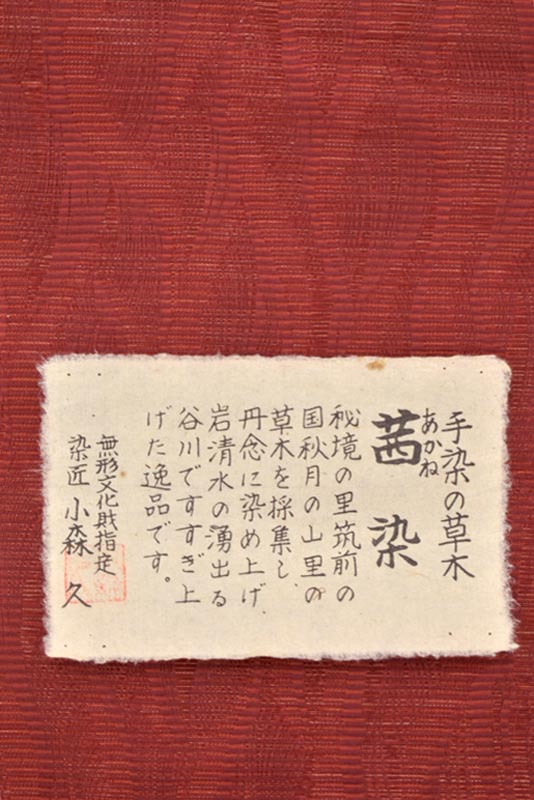 手染の草木
あかね
茜染
秘境の里筑前の
国秋月の山里の
草木を採集し、
丹念に染め上げ
岩清水の湧出る
谷川ですすぎ上
げた逸品です。
無形文化財指定
染匠 小森 久